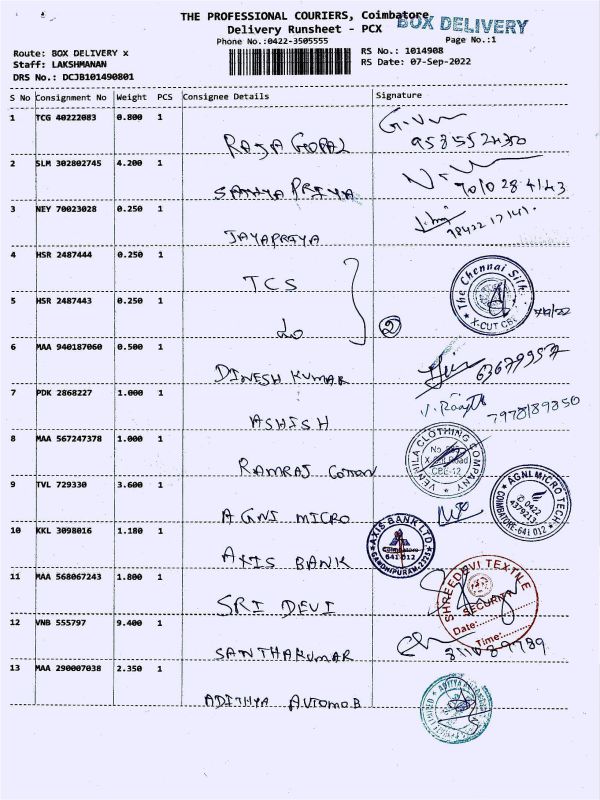 THE PROFESSIONAL COURIERS, Coimbatore
BOX DELIVERY
Delivery Runsheet - PCX
Phone No.:0422-3505555
Page No.:1
Route: BOX DELIVERY x
RS No.: 1014908
Staff: LAKSHMANAN
RS Date: 07-Sep-2022
DRS No.: DCJB101490801
S No Consignment No Weight PCS Consignee Details Signature
1 TCG 40222083 0.800 1
RAJA GOPAL
2 SLM 302802745 4.200 1
SATHYA PRIYA 7010284143
3 NEY 70023028 0.250 1
JAYAPRIYA
4 HSR 2487444 0.250 1
TCS
The Chennai Silks
X-CUT CBE
5 HSR 2487443 0.250 1
do 2
6 MAA 940187060 0.500 1
DINESH KUMAR
7 PDK 2868227 1.000 1
ASHISH
8 MAA 567247378 1.000 1
RAMRAJ COTTON
CLOTHING COMPANY
CBE-12
9 TVL 729330 3.600 1
AGNI MICRO
AGNI MICRO TECH
0422
COIMBATORE-641 012
10 KKL 3098016 1.180 1
AXIS BANK
AXIS BANK LTD
Coimbatore
641 012
GANDHIPURAM
11 MAA 568067243 1.800 1
SRI DEVI
SHREEDEVI TEXTILE
SECURITY
Date:
Time:
12 VNB 555797 9.400 1
SANTHAKUMAR
13 MAA 290007038 2.350 1
ADITHYA AUTOMOB